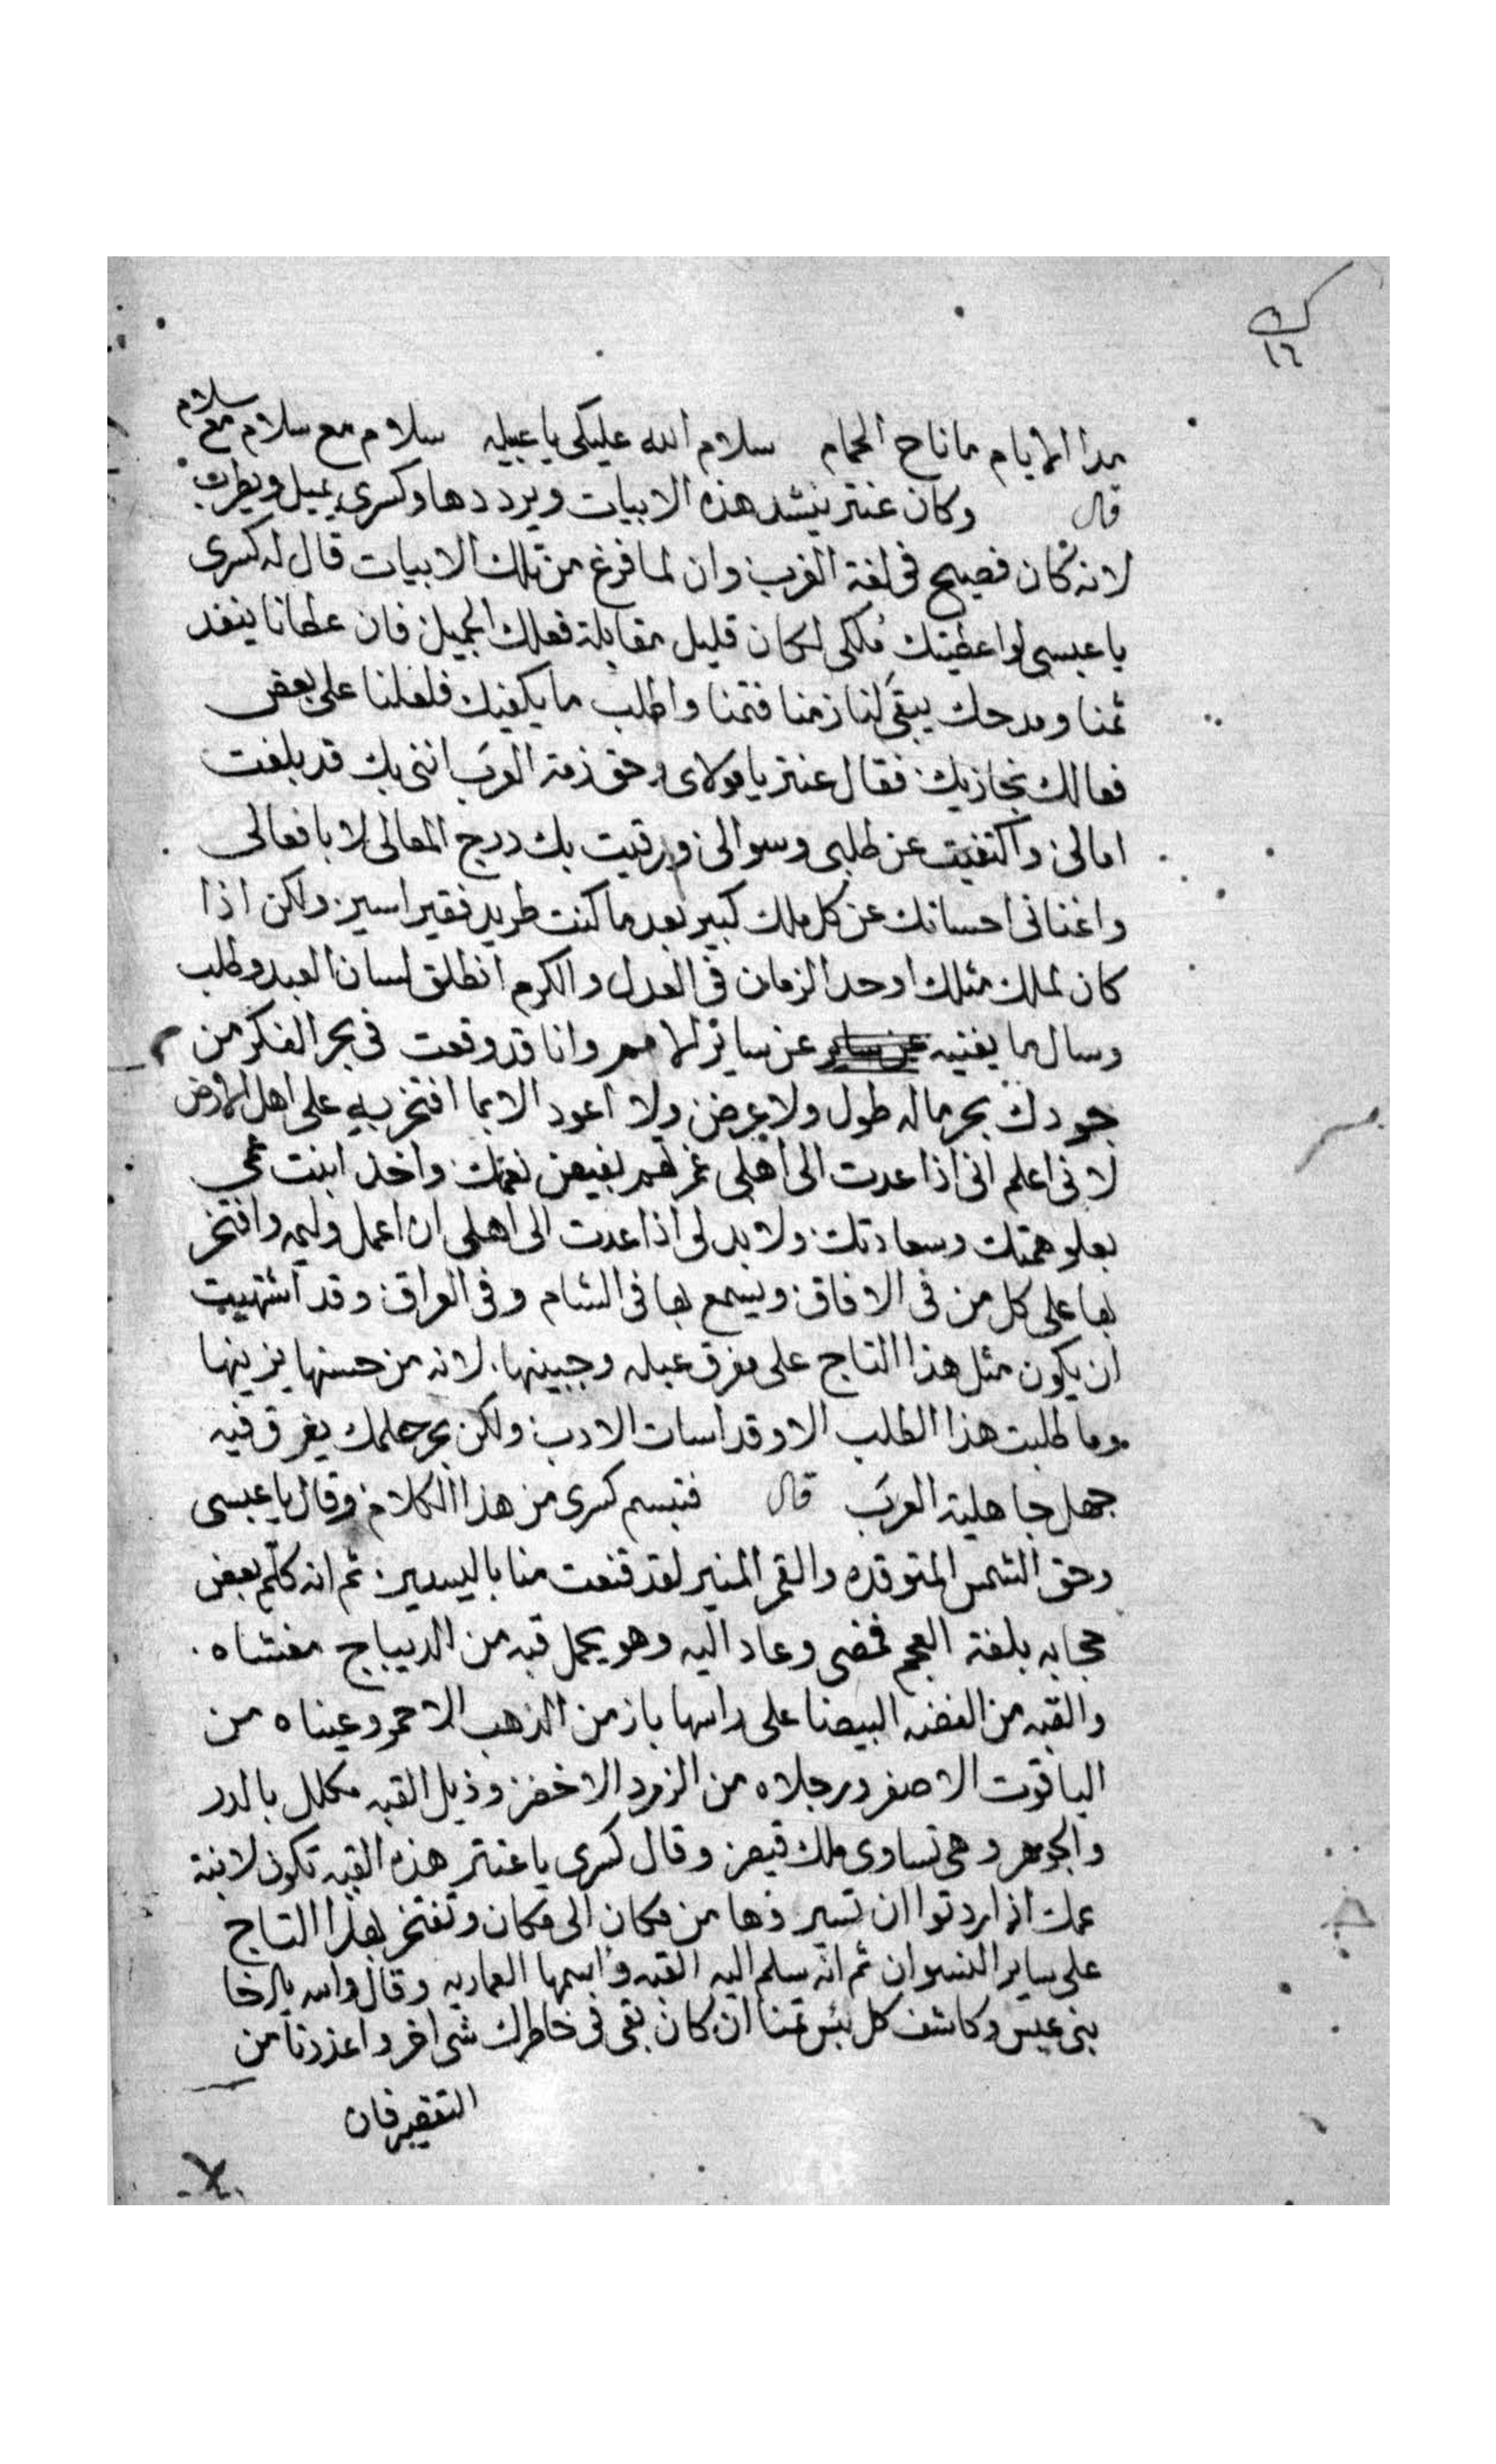 ك
١٦
مدا الايام ما ناح الحمام سلام الله عليكى يا عبيله سلام مع سلام مع سلام
قال وكان عنتر ينشد هذه الابيات ويرددها وكسرى يميل ويطرب
لانه كان فصيح فى لغة العرب وان لما فرغ من تلك الابيات قال له كسرى
يا عبسى لو اعطيتك ملكى لكان قليل بمقابلة فعلك الجميل فان عطانا ينفد
ثمنا ومدحك يبقى لنا زمنا فتمنا واطلب ما يكفيك فلعلنا على بعض
فعالك نجازيك فقال عنتر يا مولاى وحق ذمة العرب اننى بك قد بلغت
امالى واكتفيت عن طلبى وسوالى ورقيت بك درج المعالى لا بافعالى
واغنانى احسانك عن كل ملك كبير بعد ما كنت طريد فقير اسير ولكن اذا
كان لملك مثلك اوحد الزمان فى العدل والكرم انطلق لسان العبد وطلب
وسال ما يغنيه عن ساير عن ساير الامم وانا قد وقعت فى بحر الفكر من
جودك بحر ماله طول ولا عرض ولا اعود الا بما افتخر به على اهل الارض
لانى اعلم انى اذا عدت الى اهلى غمرتهم بفيض نعمتك واخذ ابنت عمى
بعلو همتك وسعادتك ولا بد لى اذا عدت الى اهلى ان اعمل وليمه وافتخر
بها على كل من فى الافاق ويسمع بها فى الشام وفى العراق وقد اشتهيت
ان يكون مثل هذا التاج على مفرق عبله وجبينها لانه من حسنها يزينها
وما طلبت هذا الطلب الا وقد اسات الادب ولكن بحر حلمك يغرق فيه
جهل جاهلية العرب قال فتبسم كسرى من هذا الكلام وقال يا عبسى
وحق الشمس المتوقده والقمر المنير لقد قنعت منا باليسير ثم انه كلم بعض
حجابه بلغة العجم فمضى وعاد اليه وهو يحمل قبه من الديباج مغشاه
والقبه من الفضه البيضا على راسها باز من الذهب الاحمر وعيناه من
الياقوت الاصفر ورجلاه من الزمرد الاخضر وذيل القبه مكلل بالدر
والجوهر وهى تساوى ملك قيصر وقال كسرى يا عنتر هذه القبه تكون لابنة
عمك اذا اردتوا ان تسيروها من مكان الى مكان وتفتخر بهذا التاج
على ساير النسوان ثم انه سلم اليه القبه واسمها العماريه وقال والله يا اخا
بنى عبس وكاشف كل بئس تمنا ان كان بقى فى خاطرك شى اخر واعذرنا من
التقصير فان